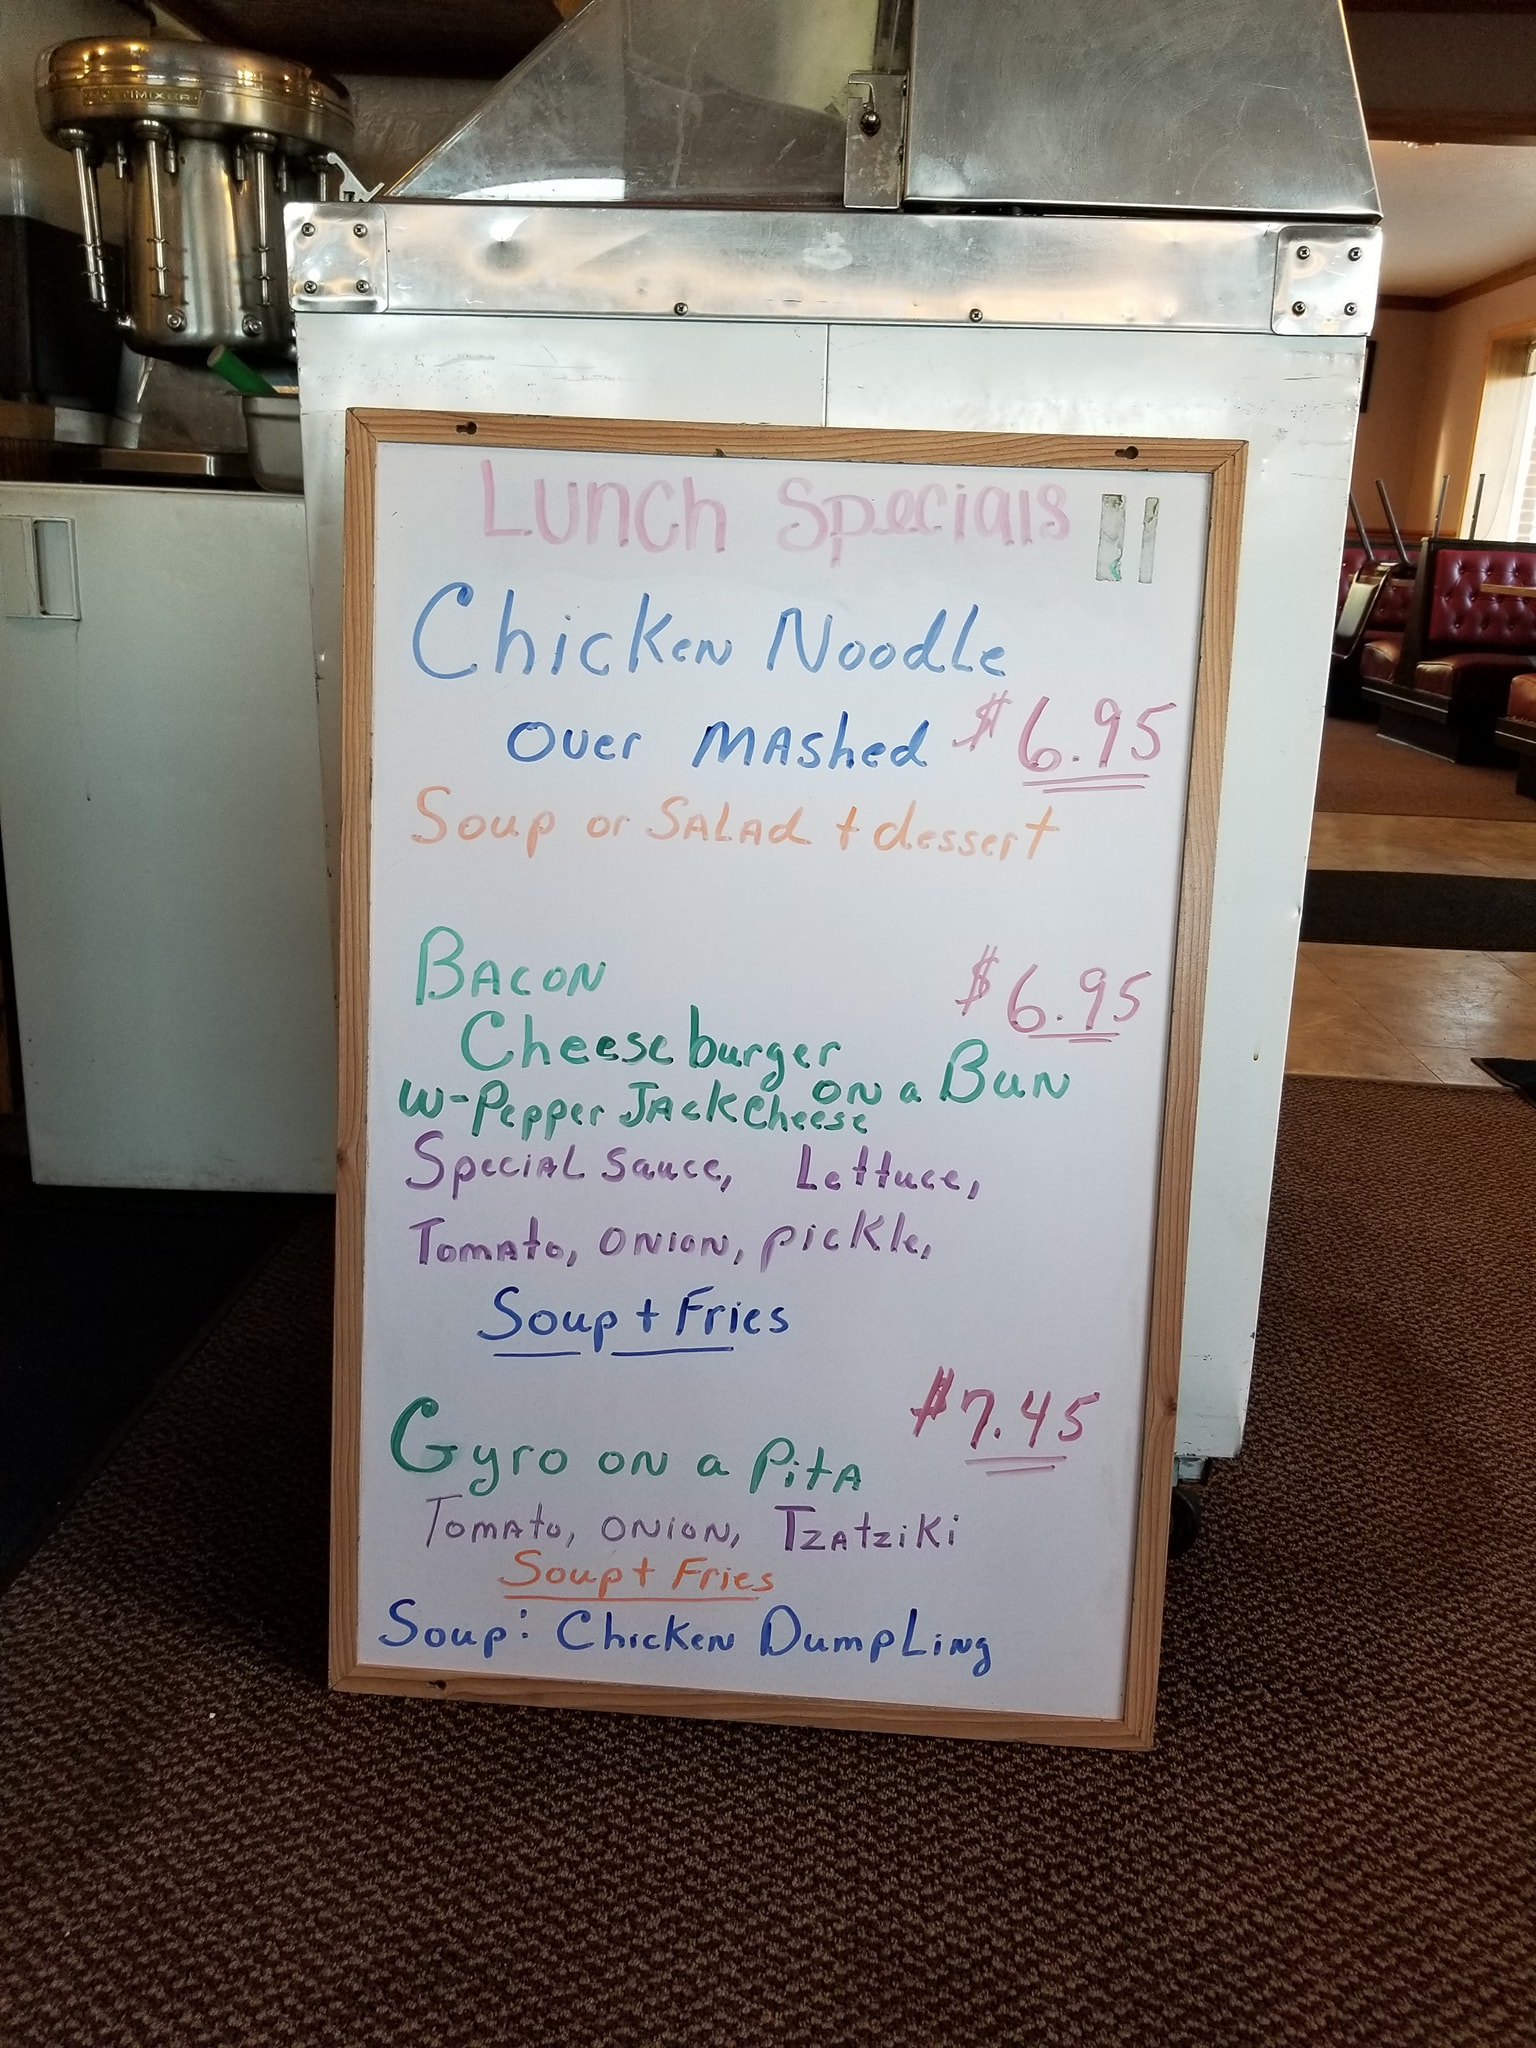 MULTIMIXER
Lunch Specials
Chicken Noodle
over Mashed $6.95
Soup or Salad + dessert
Bacon $6.95
Cheeseburger
on a Bun
w-Pepper Jack Cheese
Special Sauce, Lettuce,
Tomato, Onion, pickle,
Soup + Fries
$7.45
Gyro on a Pita
Tomato, Onion, Tzatziki
Soup + Fries
Soup: Chicken Dumpling